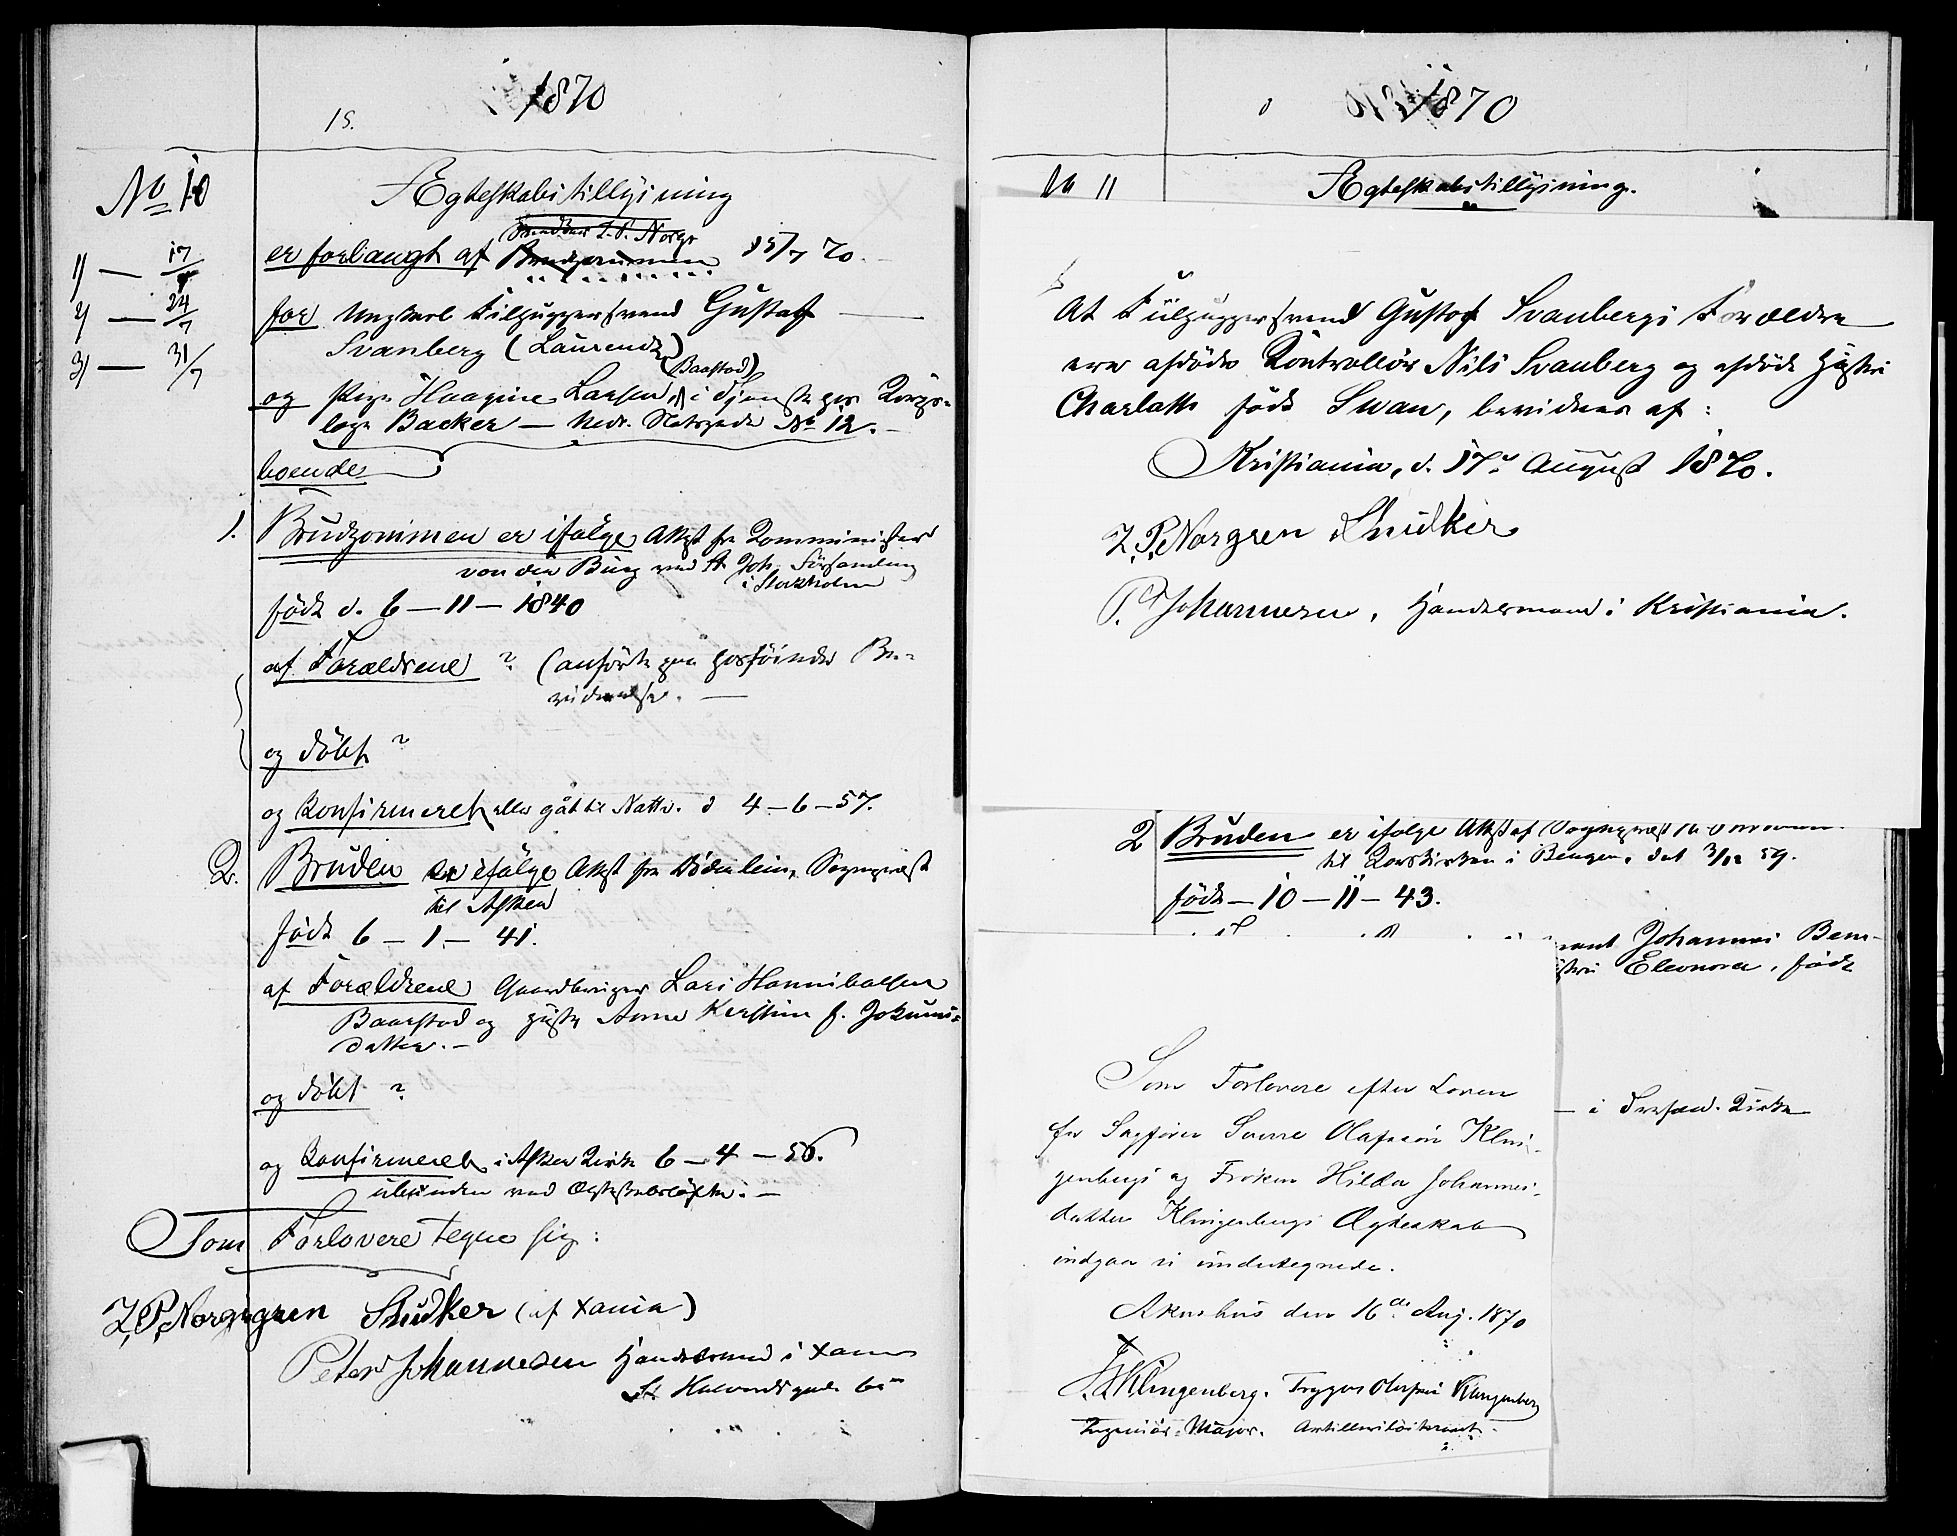 1870
15.
No 10
Ægteskabstillysning
er forlangt af Snedker Z. P. Norgr Brudgommen 15/7 70.
1) — 17/7
2) — 24/7
3) — 31/7
for Ungkarl Filhuggersvend Gustaf
Svanberg (Laurents)
(Baastad)
og Pige Haagine Larsen, i Tjeneste hos
Backer — Nedr. Slotsgade No 12.
boende
1. Brudgommen er ifølge Attest fra Komminister
von der Burg ved St. Joh. Församling
i Stockholm
født d. 6 — 11 — 1840
af Forældrene ? (anførte paa hosføiede Be-
vidnelse. —
og døbt ?
og Konfirmeret eller gået til Nattv. d 4 — 6 — 57.
2. Bruden er ifølge Attest fra Sogneprest
til Asker
født 6 — 1 — 41.
af Forældrene Gaardbruger Lars Hannibalsen
Baastad og Hustr Anne Kirstine f. Jokums-
datter. —
og døbt ?
og Konfirmeret i Asker Kirke 6 — 4 — 56.
ubunden ved Ægteskabsløfte. —
Som Forlovere tegne sig:
Z. P. Norgren Snidker (af Xania)
Peter Johannesen Handelsmand i Xania
St Halvards gade 6
1870
No 11
Ægteskabstillysning.
At Filhuggersvend Gustaf Svanbergs Forældre
ere afdøde Kontrollør Nils Svanberg og afdøde Hustru
Charlotte født Swan, bevidnes af:
Kristiania, d. 17de August 1870.
Z. P. Norgren Snidker
P. Johannesen, Handelsmand i Kristiania.
2 Bruden er ifølge Attest af Sogneprest
til Korskirken i Bergen, dat 3/12 59.
født — 10 — 11 — 43.
Johannes
Eleonora, født
Som Forlovere efter Loven
for Sagfører Sverre Olafssøn Klin-
genbergs og Frøken Hilda Johannes-
datter Klingenbergs Ægteskab
indgaa vi undertegnede.
— i Kirke
Akershus den 16de Aug. 1870
Klingenberg. Trygve Olafssøn Klingenberg
Ingeniør-Major. Artillerilöitenant.